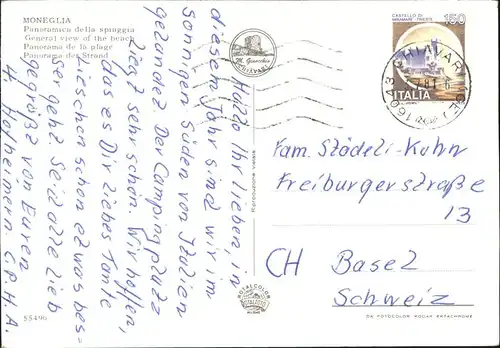 MONEGLIA
Panoramica della spiaggia
General view of the beach
Panorama de la plage
Panorama des Strand
CASTELLO DI
MIRAMARE - TRIESTE
150
ITALIA
M. Gianecchia
CHIAVARI
16043
Hallo Ihr lieben, in
diesem Jahr sind wir im
sonnigen Süden von Italien
gelandet. Der Campingplatz
liegt sehr schön. Wir hoffen,
dass es Dir liebes Tante
lieschen schon etwas bes=
ser geht. Seid alle lieb
gegrüßt von Euren
Hofheimern C. P. H. A.
Fam. Städeli-Kuhn
Freiburgerstraße
13
CH Basel
Schweiz
Riproduzione vietata
ROTALCOLOR
ROTALFOTO
MILANO
55496
DA FOTOCOLOR KODAK EKTACHROME